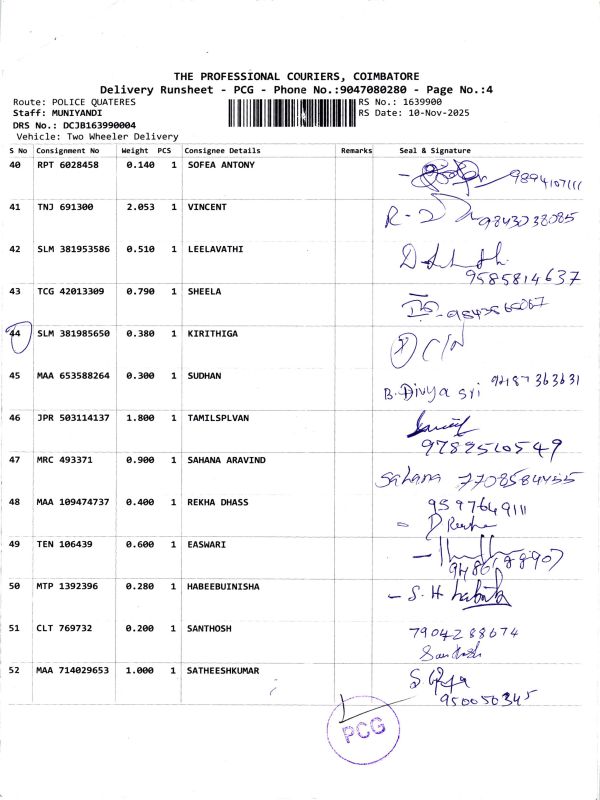 THE PROFESSIONAL COURIERS, COIMBATORE
Delivery Runsheet - PCG - Phone No.:9047080280 - Page No.:4
Route: POLICE QUATERES RS No.: 1639900
Staff: MUNIYANDI RS Date: 10-Nov-2025
DRS No.: DCJB163990004
Vehicle: Two Wheeler Delivery
S No Consignment No Weight PCS Consignee Details Remarks Seal & Signature
40 RPT 6028458 0.140 1 SOFEA ANTONY
9894107111
41 TNJ 691300 2.053 1 VINCENT
9843038085
42 SLM 381953586 0.510 1 LEELAVATHI
9585814637
43 TCG 42013309 0.790 1 SHEELA
44 SLM 381985650 0.380 1 KIRITHIGA
45 MAA 653588264 0.300 1 SUDHAN
B. Divya Sri
46 JPR 503114137 1.800 1 TAMILSPLVAN
9789510549
47 MRC 493371 0.900 1 SAHANA ARAVIND
Sahana 7708584455
48 MAA 109474737 0.400 1 REKHA DHASS
9597649111
49 TEN 106439 0.600 1 EASWARI
50 MTP 1392396 0.280 1 HABEEBUINISHA
51 CLT 769732 0.200 1 SANTHOSH
7904288674
Santhosh
52 MAA 714029653 1.000 1 SATHEESHKUMAR
950050345
PCG